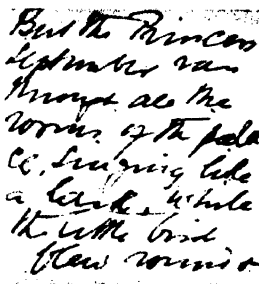 But the Princess
September ran
through all the
rooms of the pala
ce, singing like
a lark, while
the little bird
flew round &